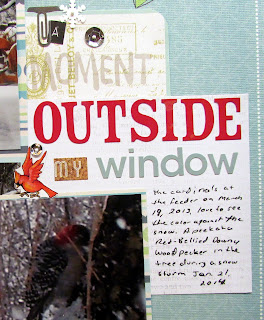 A
MOMENT
OUTSIDE
my window
the cardinals at
the feeder on March
19, 2013, love to see
the color against the
snow. A peek at a
Red-Bellied Downy
Woodpecker in the
tree during a snow
storm Jan. 21,
2014